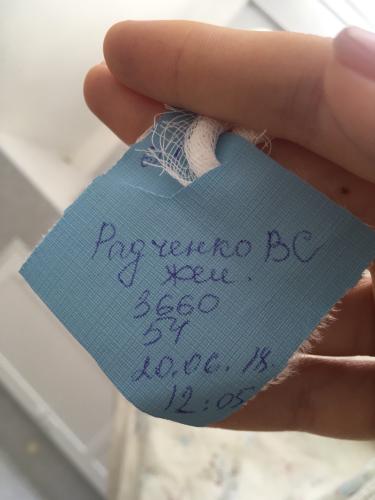 Радченко ВС
жен.
3660
54
20.06.18.
12:05